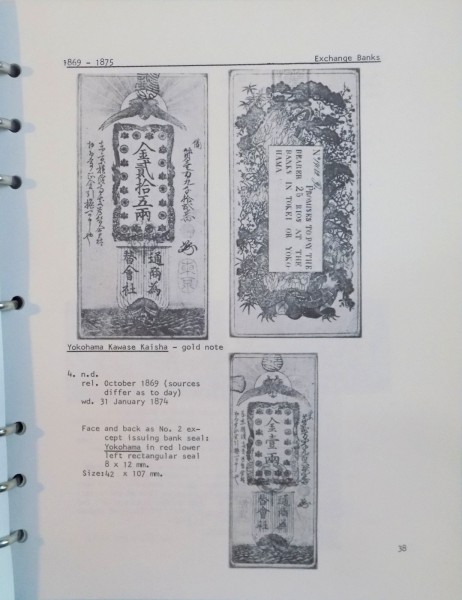 1869 - 1875
Exchange Banks
金貳拾五兩
通商為
替會社
PROMISES TO PAY THE
BEARER 25 RIOY AT THE
BANKS IN TOKEI OR YOKO
HAMA
Yokohama Kawase Kaisha - gold note
4. n.d.
rel. October 1869 (sources
differ as to day)
wd. 31 January 1874
Face and back as No. 2 ex-
cept issuing bank seal:
Yokohama in red lower
left rectangular seal
8 x 12 mm.
Size:42 x 107 mm.
金壹兩
通商為
替會社
38